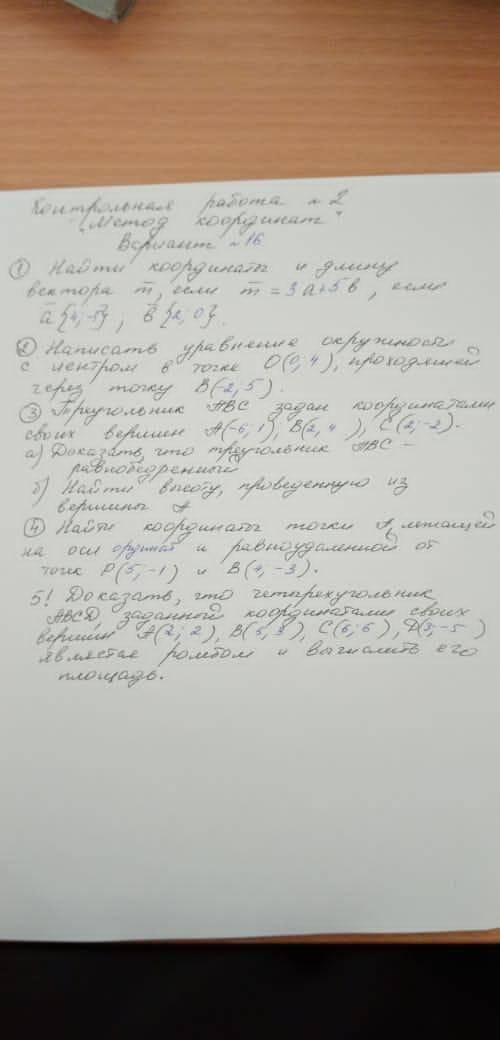 Контрольная работа №2
"Метод координат"
Вариант №16
① Найти координаты и длину
вектора m̄, если m̄ = 3ā+5в̄, если
ā{4;-5}, в̄{2;0}.
② Написать уравнение окружности
с центром в точке O(0;4), проходящей
через точку B(-2;5).
③ Треугольник ABC задан координатами
своих вершин A(-6;1), B(2,4), C(2;-2).
а) Доказать, что треугольник ABC –
равнобедренный
б) Найти высоту, проведенную из
вершины A
④ Найти координаты точки A, лежащей
на оси ординат и равноудаленной от
точек P(5,-1) и B(4,-3).
5! Доказать, что четырехугольник
ABCD, заданный координатами своих
вершин A(2;2), B(5,3), C(6;6), D(3;-5)
является ромбом и вычислить его
площадь.